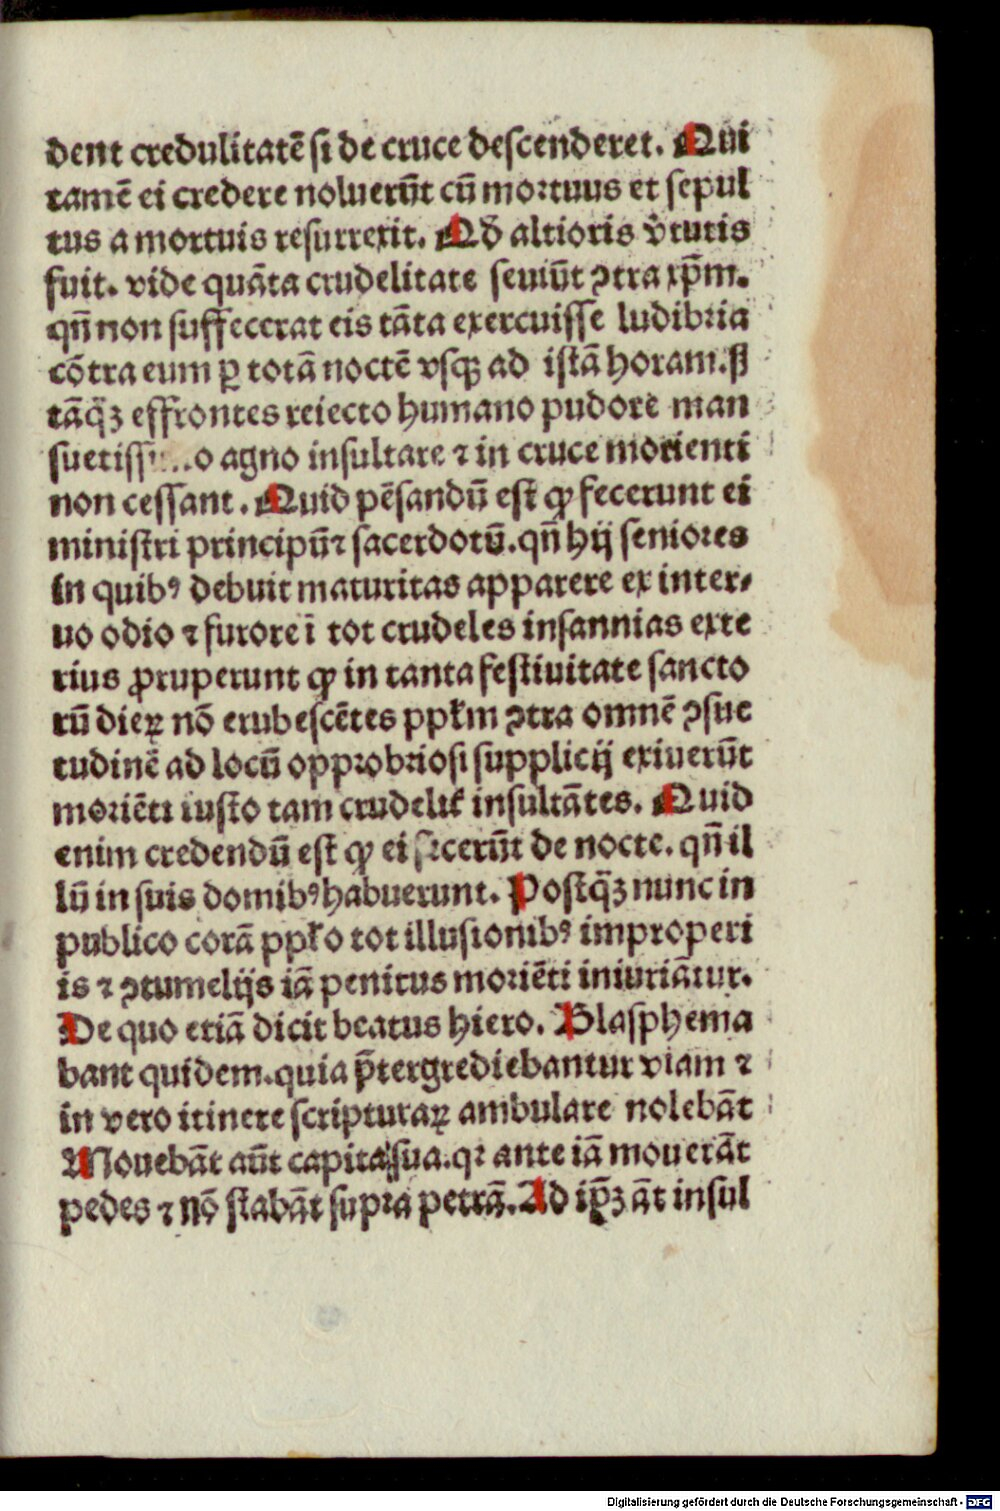 dent credulitatē si de cruce descenderet. Qui
tamē ei credere noluerūt cū mortuus et sepul
tus a mortuis resurrexit. Qd̄ altioris v̄tutis
fuit. vide quāta crudelitate seuiūt ꝯtra xp̄m.
qn̄ non suffecerat eis tāta exercuisse ludibria
cōtra eum ꝑ totā noctē vsqꝫ ad istā horam. sꝫ
tāq̄ꝫ effrontes reiecto humano pudore man
o agno insultare ⁊ in cruce morienti
non cessant. Quid pēsandū est ꝙ fecerunt ei
ministri principū⁊ sacerdotū. qn̄ hij seniores
in quibꝰ debuit maturitas apparere ex inter⸗
no odio ⁊ furore ī tot crudeles insannias exte
rius ꝓruperunt ꝙ in tanta festiuitate sancto
rū dieꝝ nō erubescētes ppl̄m ꝯtra omnē ꝯsue
tudinē ad locū opprobriosi supplicij exiuerūt
moriēti iusto tam crudelit̄ insultātes. Quid
enim credendū est ꝙ ei fecerūt de nocte. qn̄ il
lū in suis domibꝰ habuerunt. Postq̄ꝫ nunc in
publico corā ppl̄o tot illusionibꝰ improperi
is ⁊ ꝯtumelijs iā penitus moriēti iniuriātur.
De quo etiā dicit beatus hiero. Blasphema
bant quidem. quia p̄tergrediebantur viam ⁊
in vero itinere scripturaꝝ ambulare nolebāt
Mouebāt aūt capita sua. qꝛ ante iā mouerāt
pedes ⁊ nō stabāt supra petrā. Ad ip̄ꝫ āt insul
Digitalisierung gefördert durch die Deutsche Forschungsgemeinschaft - DFG